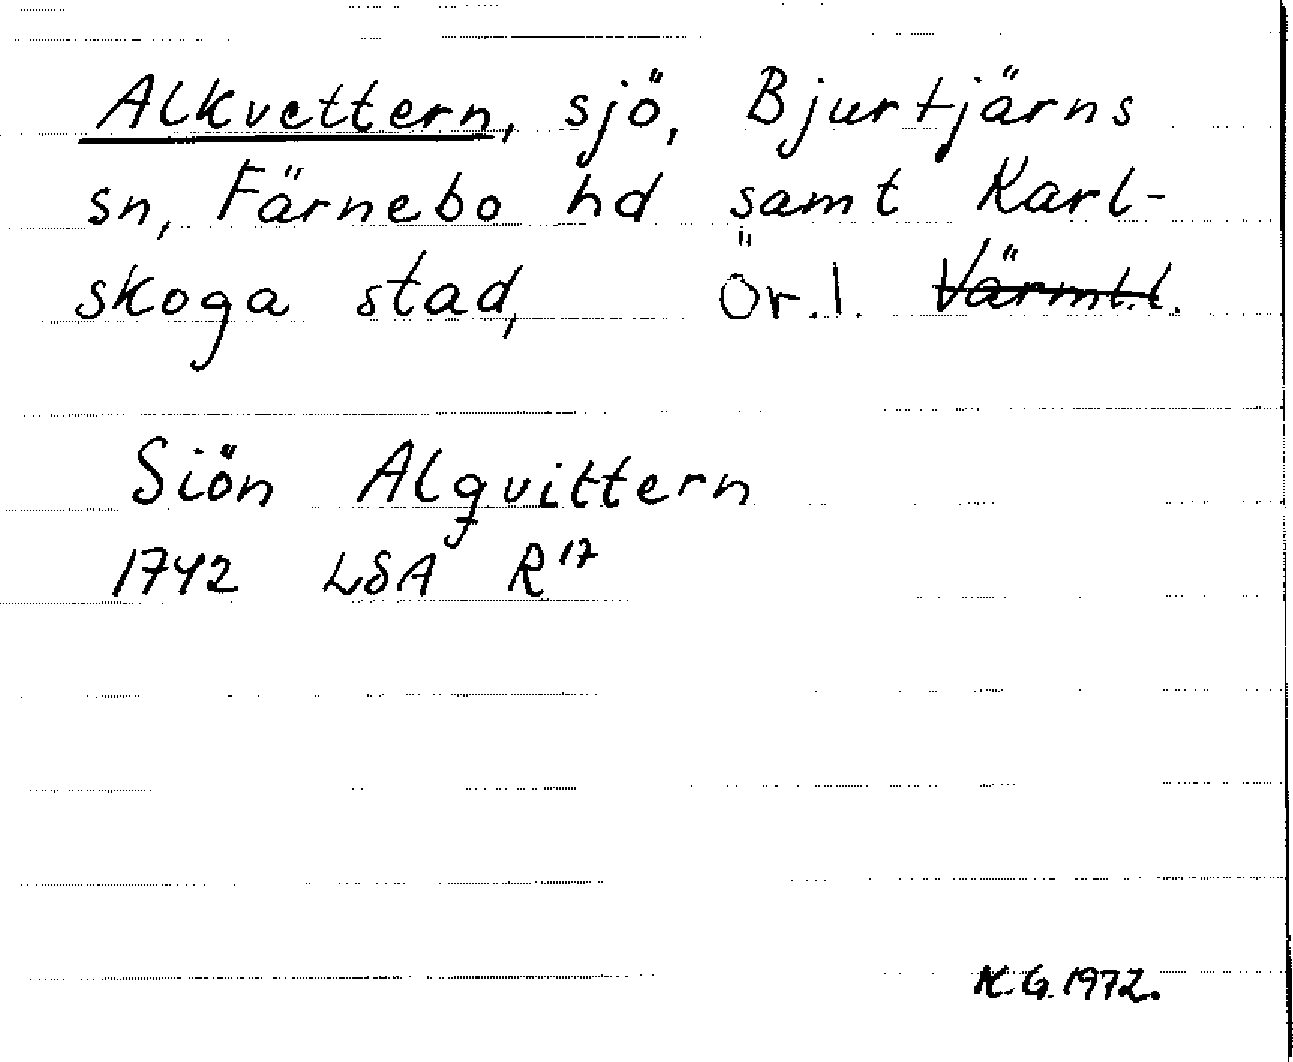 Alkvettern, sjö, Bjurtjärns
sn, Färnebo hd samt Karl-
skoga stad, Ör.l. Värml.l.
Siön Alqvittern
1742 LSA R17
K G. 1972.